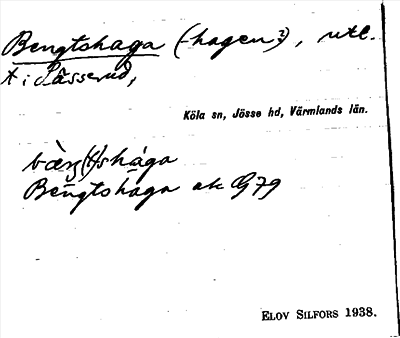 Bengtshaga (-hagen?), utl.
t. i Pässerud,
Köla sn, Jösse hd, Värmlands län.
bæ̀ŋ(t)shága
Bengtshaga ak G79
ELOV SILFORS 1938.